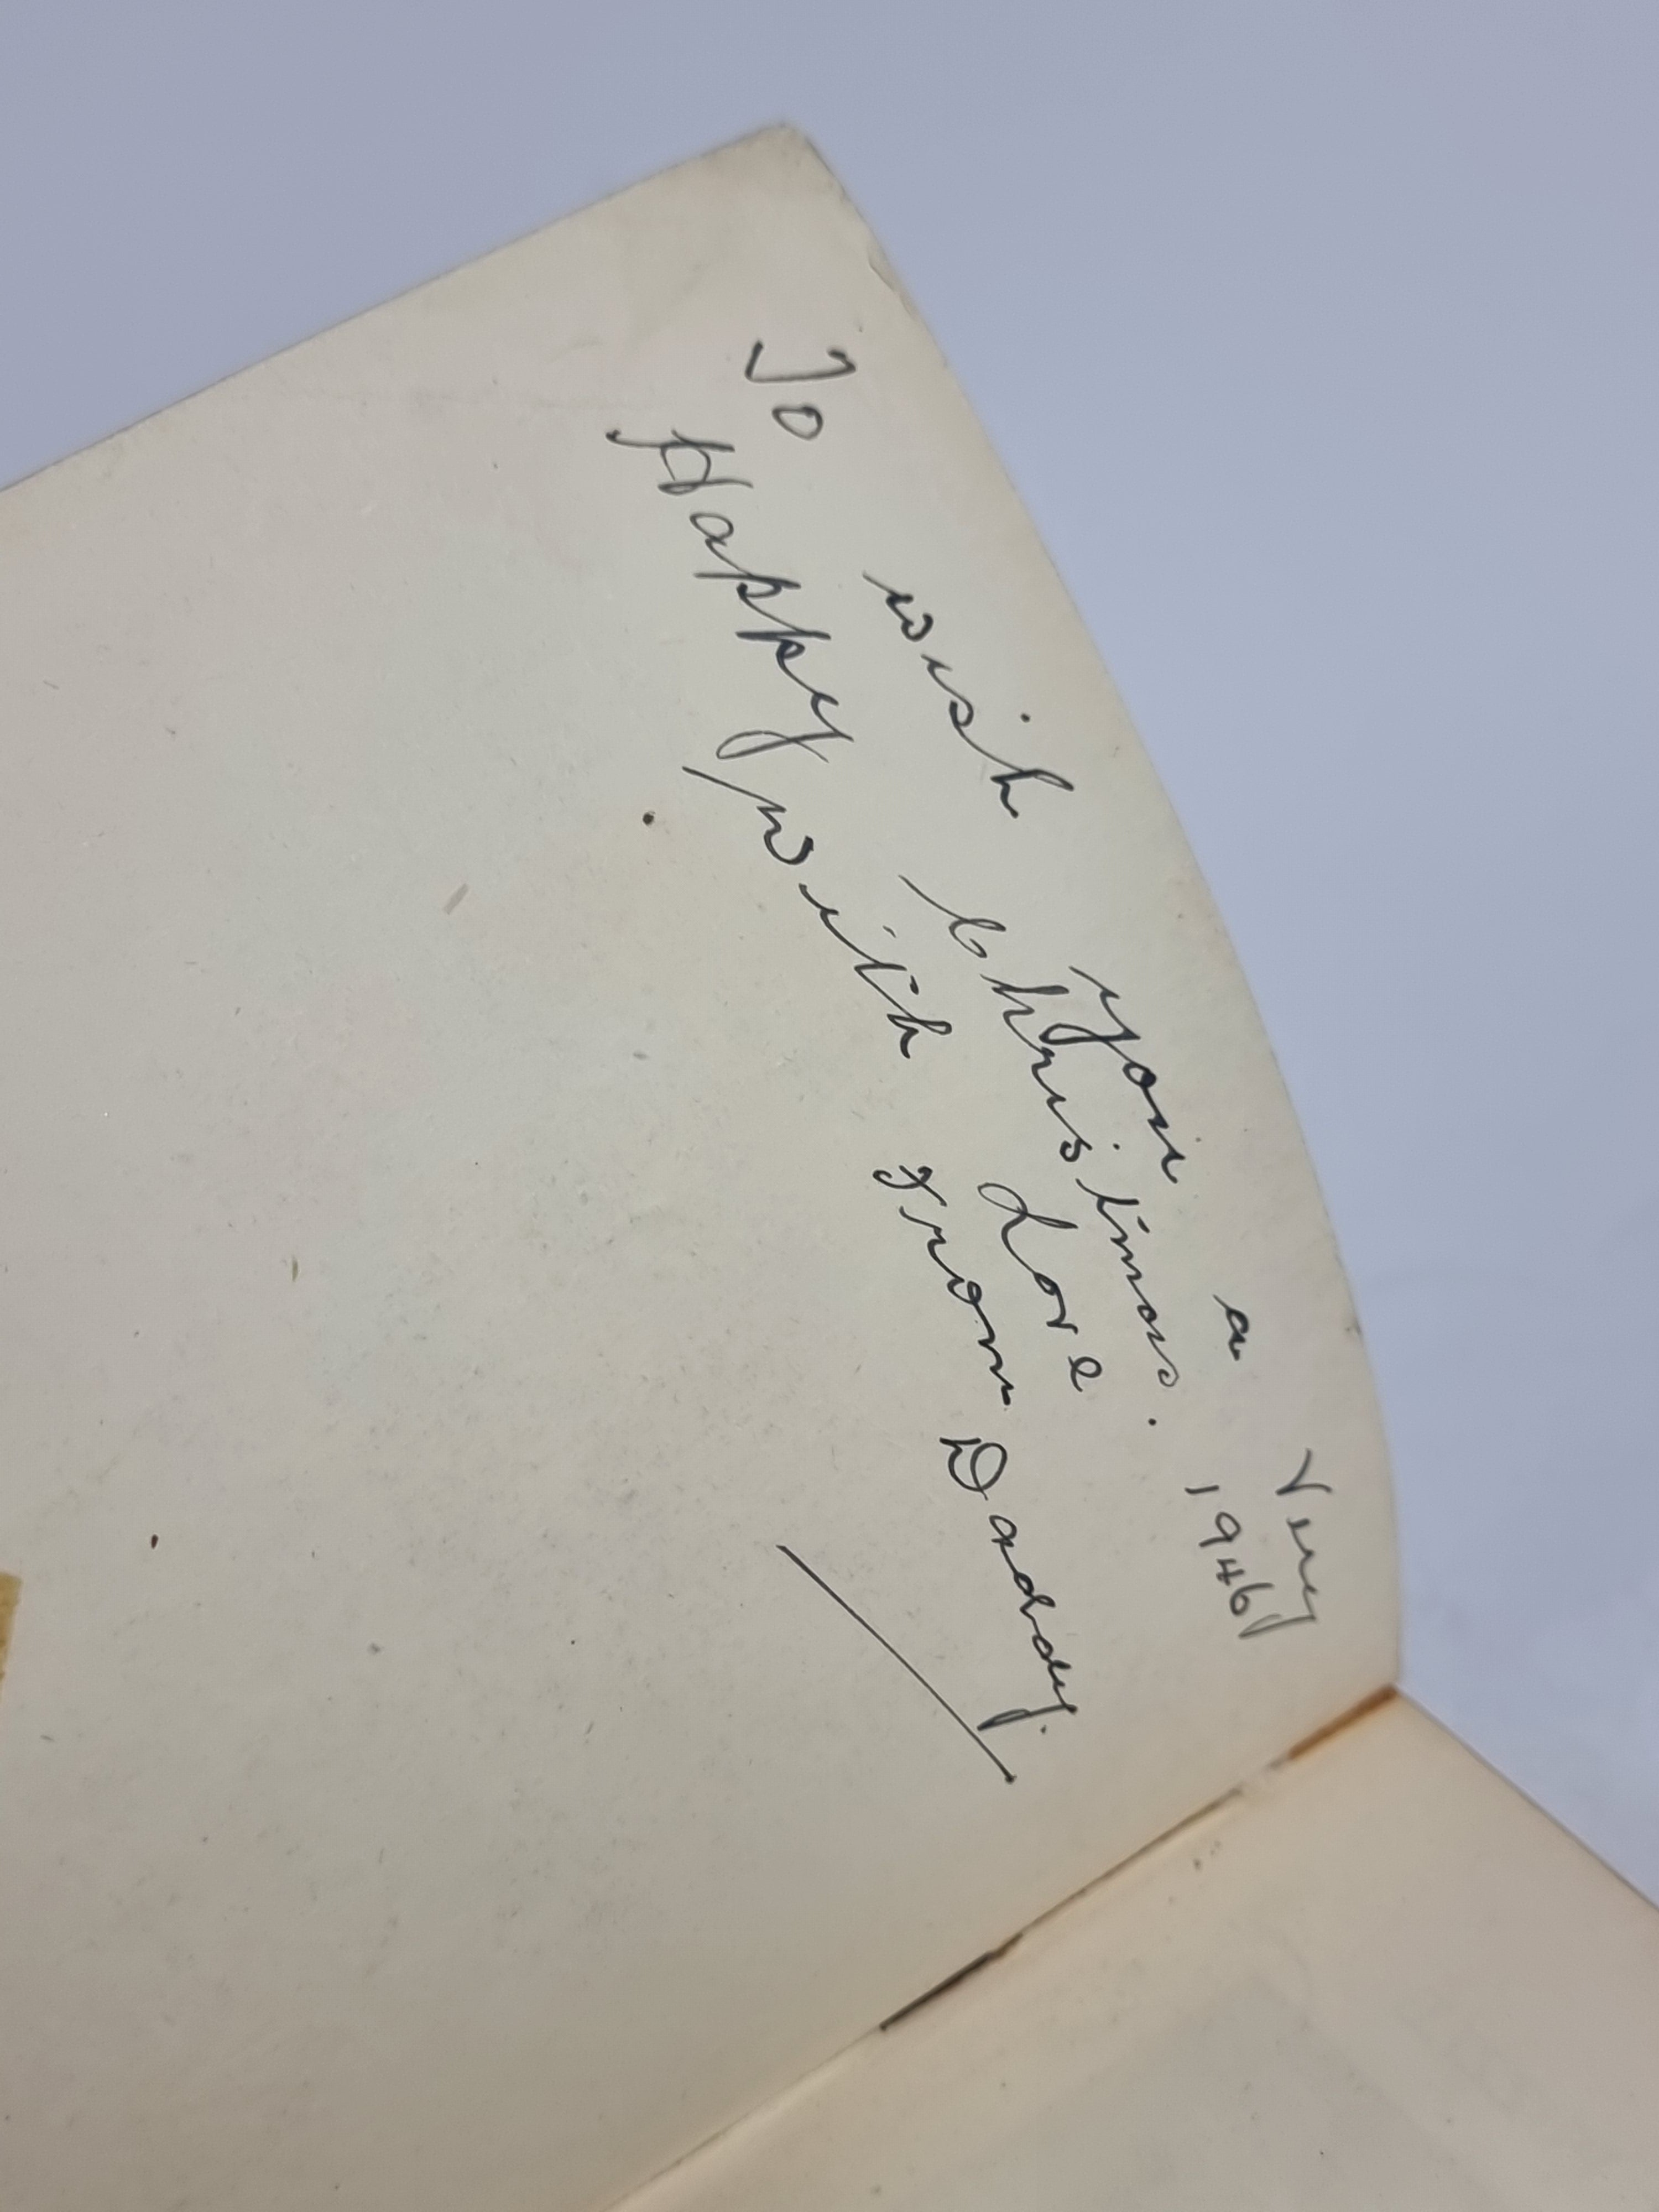 To wish you a Very
Happy Christmas. 1946
with Love
from Daddy.